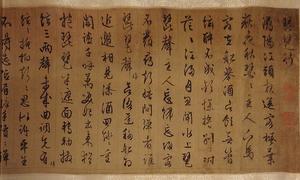 琵琶行
潯陽江頭夜送客楓葉
荻花秋瑟瑟主人下馬
客在船舉酒欲飲無管
絃醉不成歡慘將別別
茫茫江浸月忽聞水上琵
琶聲主人忘歸客
不發尋聲暗問彈者誰
琵琶聲停欲語遲移船相
近邀相見添酒回燈重
開宴千呼萬喚始出來猶
抱琵琶半遮面轉軸撥
絃三兩聲未成曲調先有
情絃絃掩抑聲聲思似訴平生
不得志低眉信手續續彈